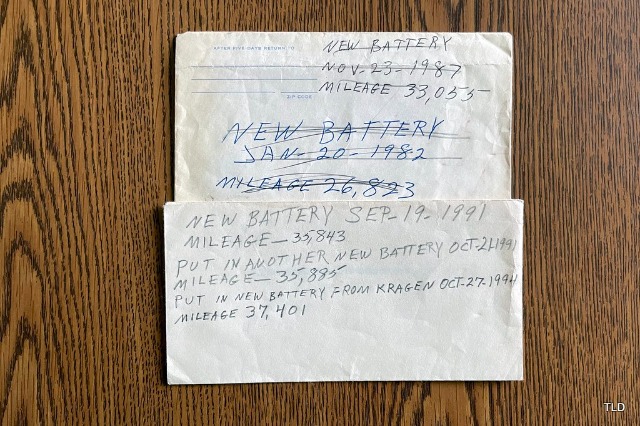 AFTER FIVE DAYS RETURN TO
NEW BATTERY
NOV-23-1987
MILEAGE 33,055
ZIP CODE
NEW BATTERY
JAN-20-1982
MILEAGE 26,823
NEW BATTERY SEP-19-1991
MILEAGE—35,843
PUT IN ANOTHER NEW BATTERY OCT-21-1991
MILEAGE—35,885
PUT IN NEW BATTERY FROM KRAGEN OCT-27-1994
MILEAGE 37,401
TLD